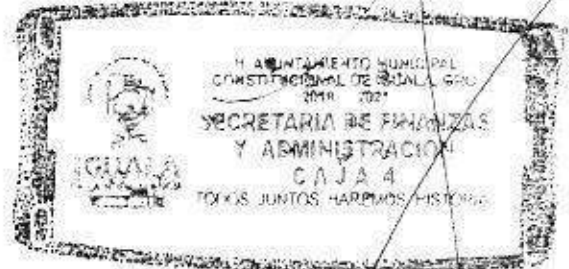 H. AYUNTAMIENTO MUNICIPAL
CONSTITUCIONAL DE IGUALA, GRO.
2018 2021
SECRETARIA DE FINANZAS
Y ADMINISTRACION
CAJA 4
TODOS JUNTOS HAREMOS HISTORIA
IGUALA